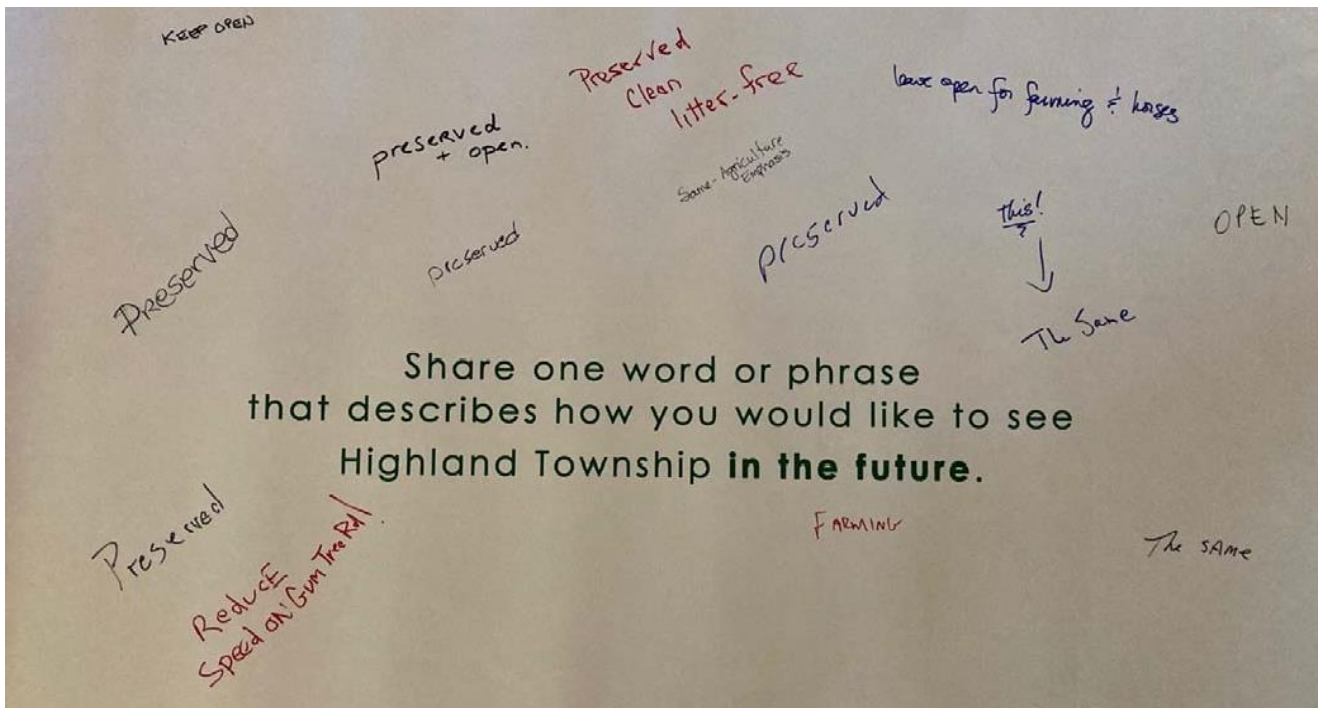 KEEP OPEN
Preserved
Clean
litter-free
leave open for farming & horses
preserved
+ open.
Same - Agriculture
Emphasis
Preserved
preserved
preserved
this!
OPEN
The Same
Share one word or phrase
that describes how you would like to see
Highland Township in the future.
Preserved
REDUCE
Speed on Gum Tree Rd!
FARMING
The SAME